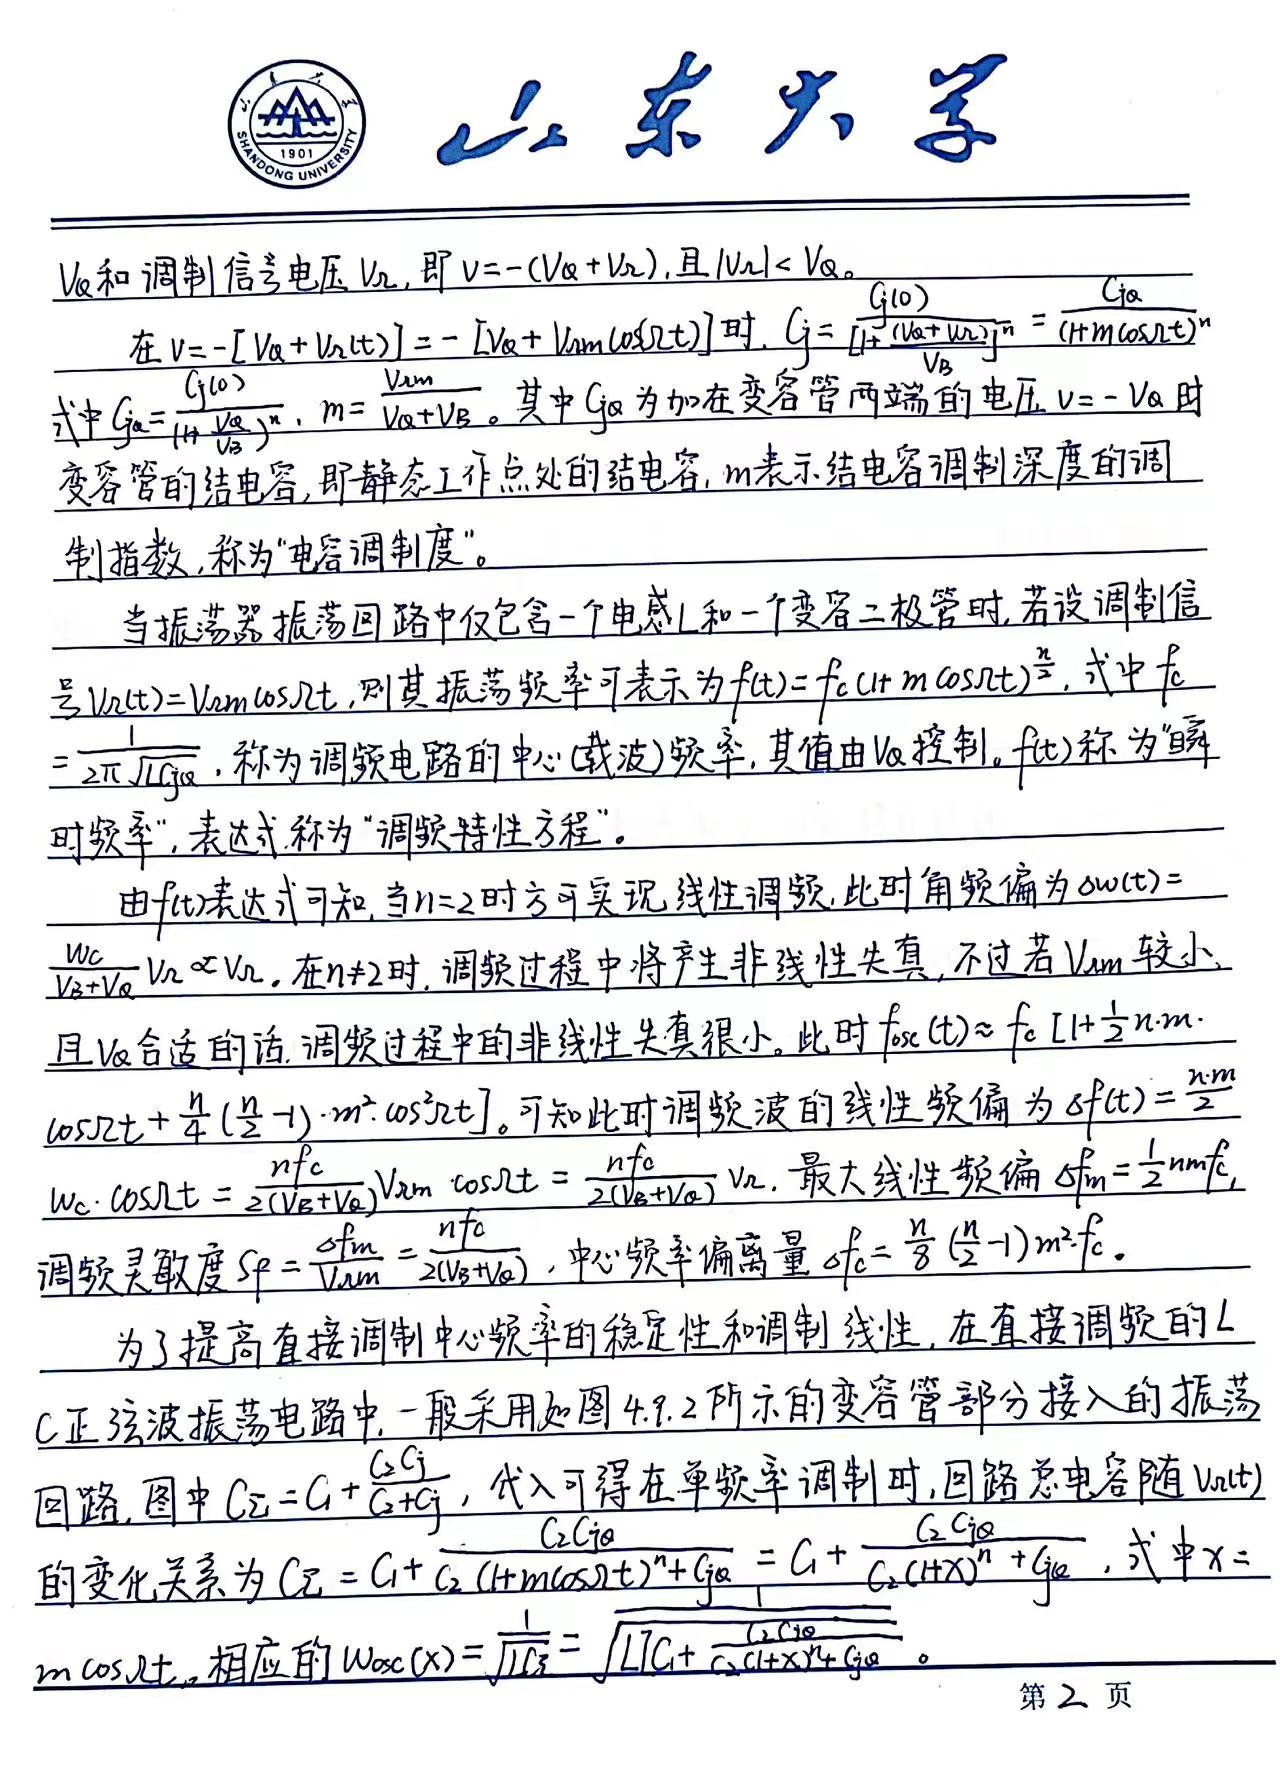 山东大学
山东大学
SHANDONG UNIVERSITY
1901
V_Q和调制信号电压V_Ω,即v=-(V_Q+V_Ω),且|V_Ω|<V_Q。
在v=-[V_Q+V_Ω(t)]=-[V_Q+V_Ωm cos(Ωt)]时,C_j=C_j(0)/[1+(V_Q+V_Ω)/V_B]^n=C_jQ/(1+m cosΩt)^n
式中C_jQ=C_j(0)/(1+V_Q/V_B)^n,m=V_Ωm/(V_Q+V_B)。其中C_jQ为加在变容管两端的电压v=-V_Q时
变容管的结电容,即静态工作点处的结电容,m表示结电容调制深度的调
制指数,称为“电容调制度”。
当振荡器振荡回路中仅包含一个电感L和一个变容二极管时,若设调制信
号V_Ω(t)=V_Ωm cosΩt,则其振荡频率可表示为f(t)=f_c(1+m cosΩt)^(n/2),式中f_c
=1/(2π√(LC_jQ)),称为调频电路的中心(载波)频率,其值由V_Q控制。f(t)称为“瞬
时频率”,表达式称为“调频特性方程”。
由f(t)表达式可知,当n=2时方可实现线性调频,此时角频偏为Δw(t)=
w_c/(V_B+V_Q) V_Ω∝V_Ω。在n≠2时,调频过程中将产生非线性失真,不过若V_Ωm较小、
且V_Q合适的话,调频过程中的非线性失真很小。此时f_osc(t)≈f_c[1+1/2 n·m·
cosΩt+n/4(n/2-1)·m²·cos²Ωt]。可知此时调频波的线性频偏为Δf(t)=n·m/2
w_c·cosΩt=nf_c/(2(V_B+V_Q)) V_Ωm·cosΩt=nf_c/(2(V_B+V_Q)) V_Ω,最大线性频偏Δf_m=1/2 nmf_c,
调频灵敏度S_f=Δf_m/V_Ωm=nf_c/(2(V_B+V_Q)),中心频率偏离量Δf_c=n/8(n/2-1)m²·f_c。
为了提高直接调制中心频率的稳定性和调制线性,在直接调频的L
C正弦波振荡电路中,一般采用如图4.9.2所示的变容管部分接入的振荡
回路,图中C_Σ=C_1+C_2C_j/(C_2+C_j),代入可得在单频率调制时,回路总电容随V_Ω(t)
的变化关系为C_Σ=C_1+C_2C_jQ/(C_2(1+m cosΩt)^n+C_jQ)=C_1+C_2C_jQ/(C_2(1+x)^n+C_jQ),式中x=
m cosΩt,相应的w_osc(x)=1/√(LC_Σ)=1/√(L[C_1+C_2C_jQ/(C_2(1+x)^n+C_jQ)])。
第2页